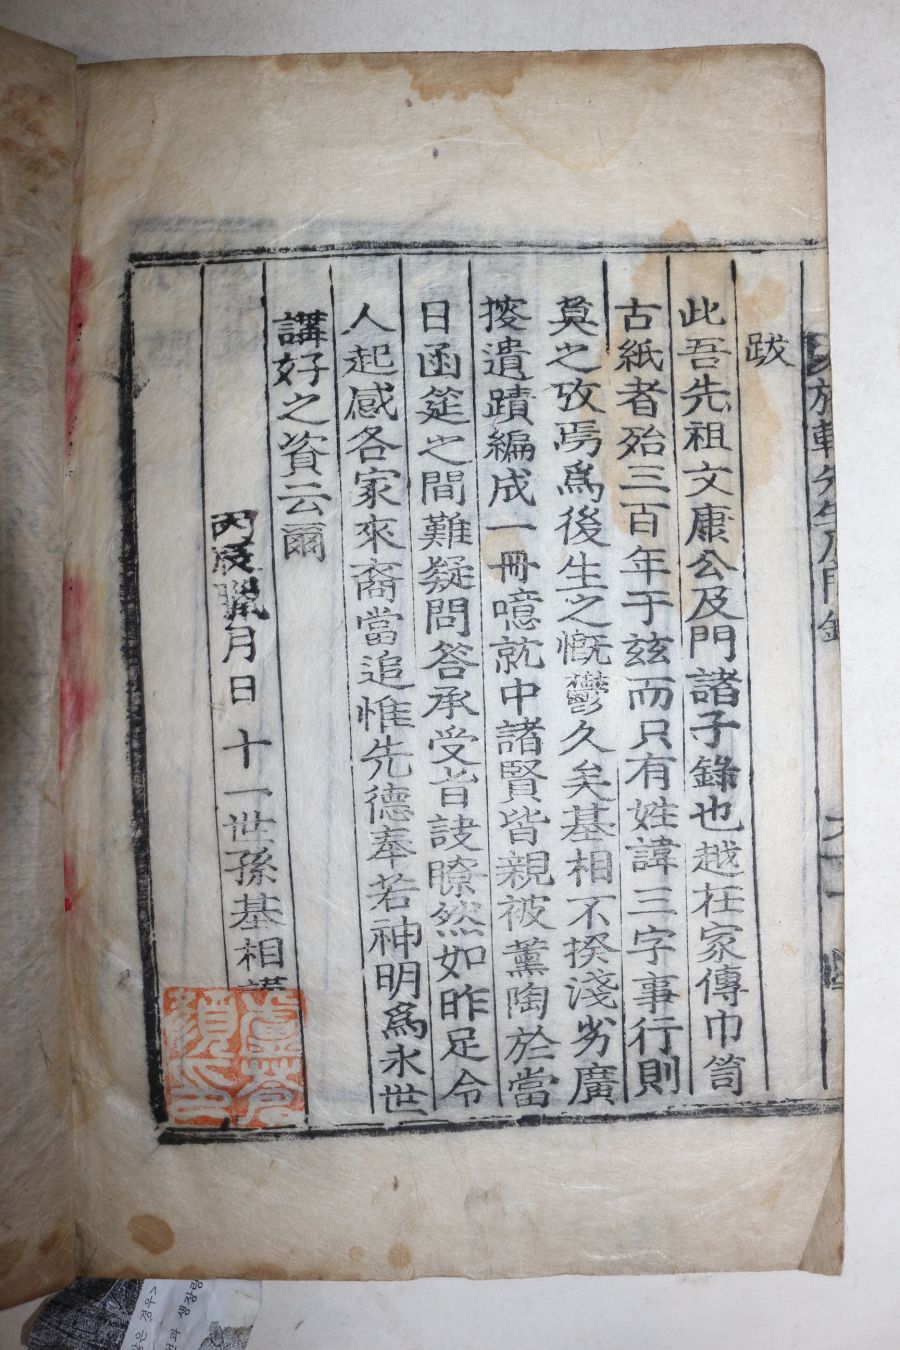 跋
此吾先祖文康公及門諸子錄也越在家傳巾笥
古紙者殆三百年于玆而只有姓諱三字事行則
莫之攷焉爲後生之慨鬱久矣基相不揆淺劣廣
搜遺蹟編成一冊噫就中諸賢皆親被薰陶於當
日函筵之間難疑問答承受旨訣瞭然如昨足令
人起感各家來裔當追惟先德奉若神明爲永世
講好之資云爾
丙辰臘月日十一世孫基相謹